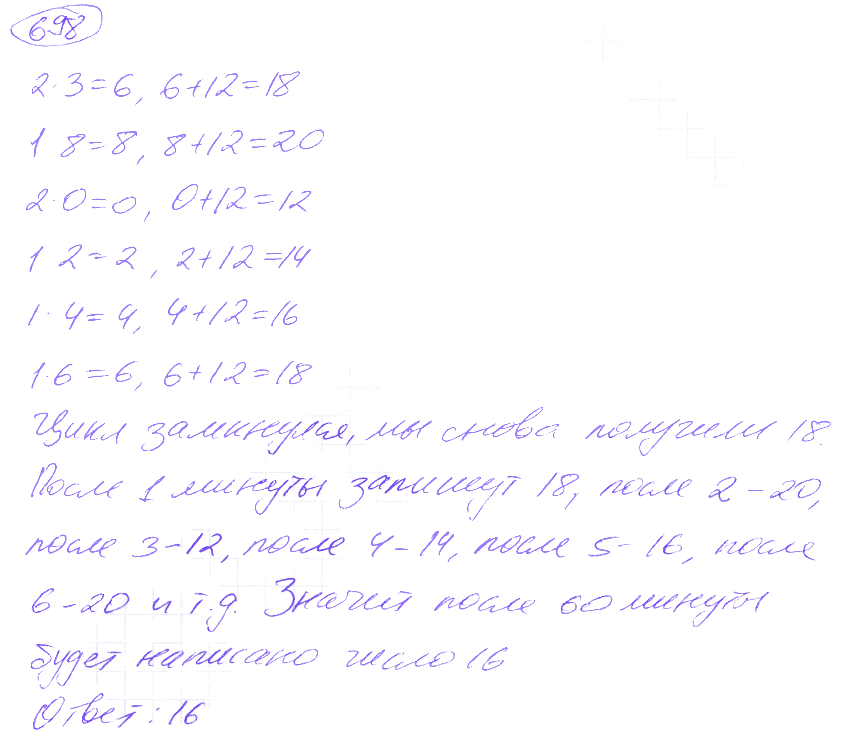 698
2·3=6, 6+12=18
1·8=8, 8+12=20
2·0=0, 0+12=12
1·2=2, 2+12=14
1·4=4, 4+12=16
1·6=6, 6+12=18
Цикл замкнулся, мы снова получили 18.
После 1 минуты запишут 18, после 2-20,
после 3-12, после 4-14, после 5-16, после
6-20 и т.д. Значит после 60 минуты
будет написано число 16
Ответ: 16